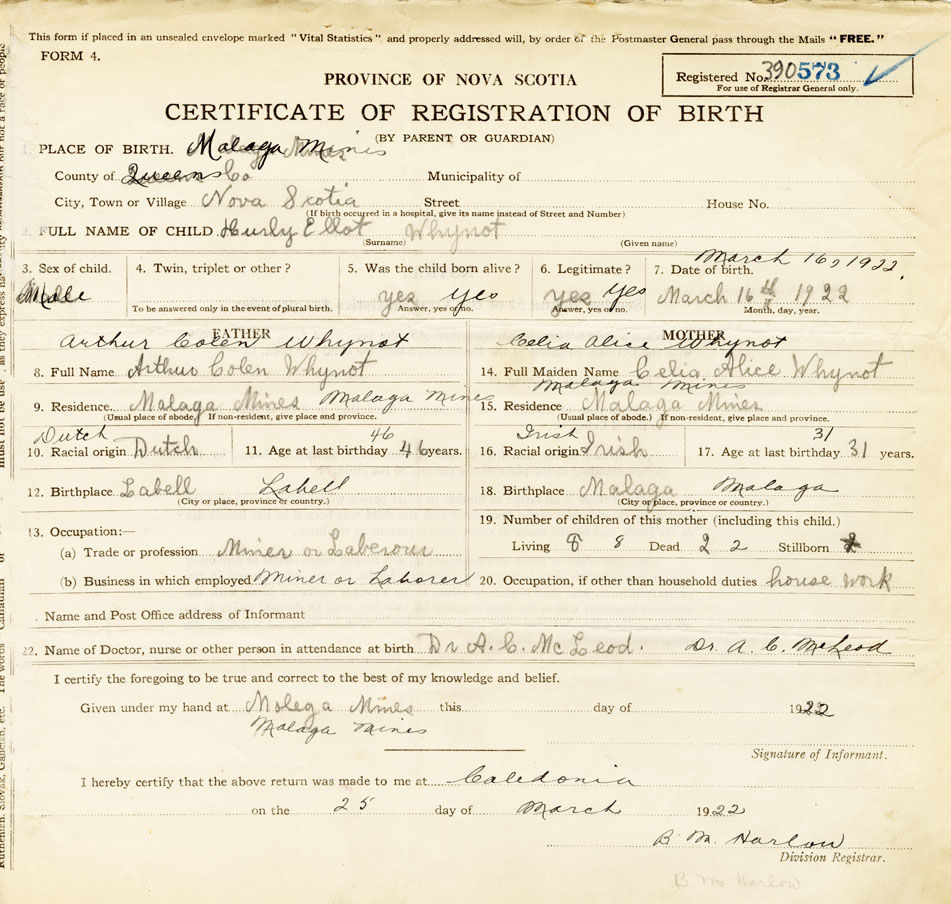 This form if placed in an unsealed envelope marked "Vital Statistics" and properly addressed will, by order of the Postmaster General pass through the Mails "FREE."
FORM 4.
PROVINCE OF NOVA SCOTIA
Registered No. 390573
For use of Registrar General only.
CERTIFICATE OF REGISTRATION OF BIRTH
(BY PARENT OR GUARDIAN)
1. PLACE OF BIRTH. Malaga Mines
County of Queens Co Municipality of
City, Town or Village Nova Scotia Street House No.
(If birth occurred in a hospital, give its name instead of Street and Number)
2. FULL NAME OF CHILD Hurly Ellot Whynot
(Surname) (Given name)
March 16, 1922.
3. Sex of child. 4. Twin, triplet or other? 5. Was the child born alive? 6. Legitimate? 7. Date of birth.
Male yes yes yes yes March 16th 1922
To be answered only in the event of plural birth. Answer, yes or no. Answer, yes or no. Month, day, year.
FATHER MOTHER
Arthur Colen Whynot Celia Alice Whynot
8. Full Name Arthur Colen Whynot 14. Full Maiden Name Celia Alice Whynot
Malaga Mines
9. Residence. Malaga Mines Malaga Mines 15. Residence Malaga Mines
(Usual place of abode.) If non-resident, give place and province. (Usual place of abode.) If non-resident, give place and province.
Dutch 46 Irish 31
10. Racial origin Dutch 11. Age at last birthday 46 years. 16. Racial origin Irish 17. Age at last birthday 31 years.
12. Birthplace Labell Labell 18. Birthplace Malaga Malaga
(City or place, province or country.) (City or place, province or country.)
13. Occupation:— 19. Number of children of this mother (including this child.)
(a) Trade or profession Miner or Laberour Living 8 8 Dead 2 2 Stillborn
(b) Business in which employed Miner or Laborer 20. Occupation, if other than household duties house work
Name and Post Office address of Informant
22. Name of Doctor, nurse or other person in attendance at birth Dr A. C. McLeod. Dr. A. C. McLeod
I certify the foregoing to be true and correct to the best of my knowledge and belief.
Given under my hand at Molega Mines this day of 1922
Malaga Mines
Signature of Informant.
I hereby certify that the above return was made to me at Caledonia
on the 25 day of March 1922
B. M. Harlow
Division Registrar.
B M Harlow